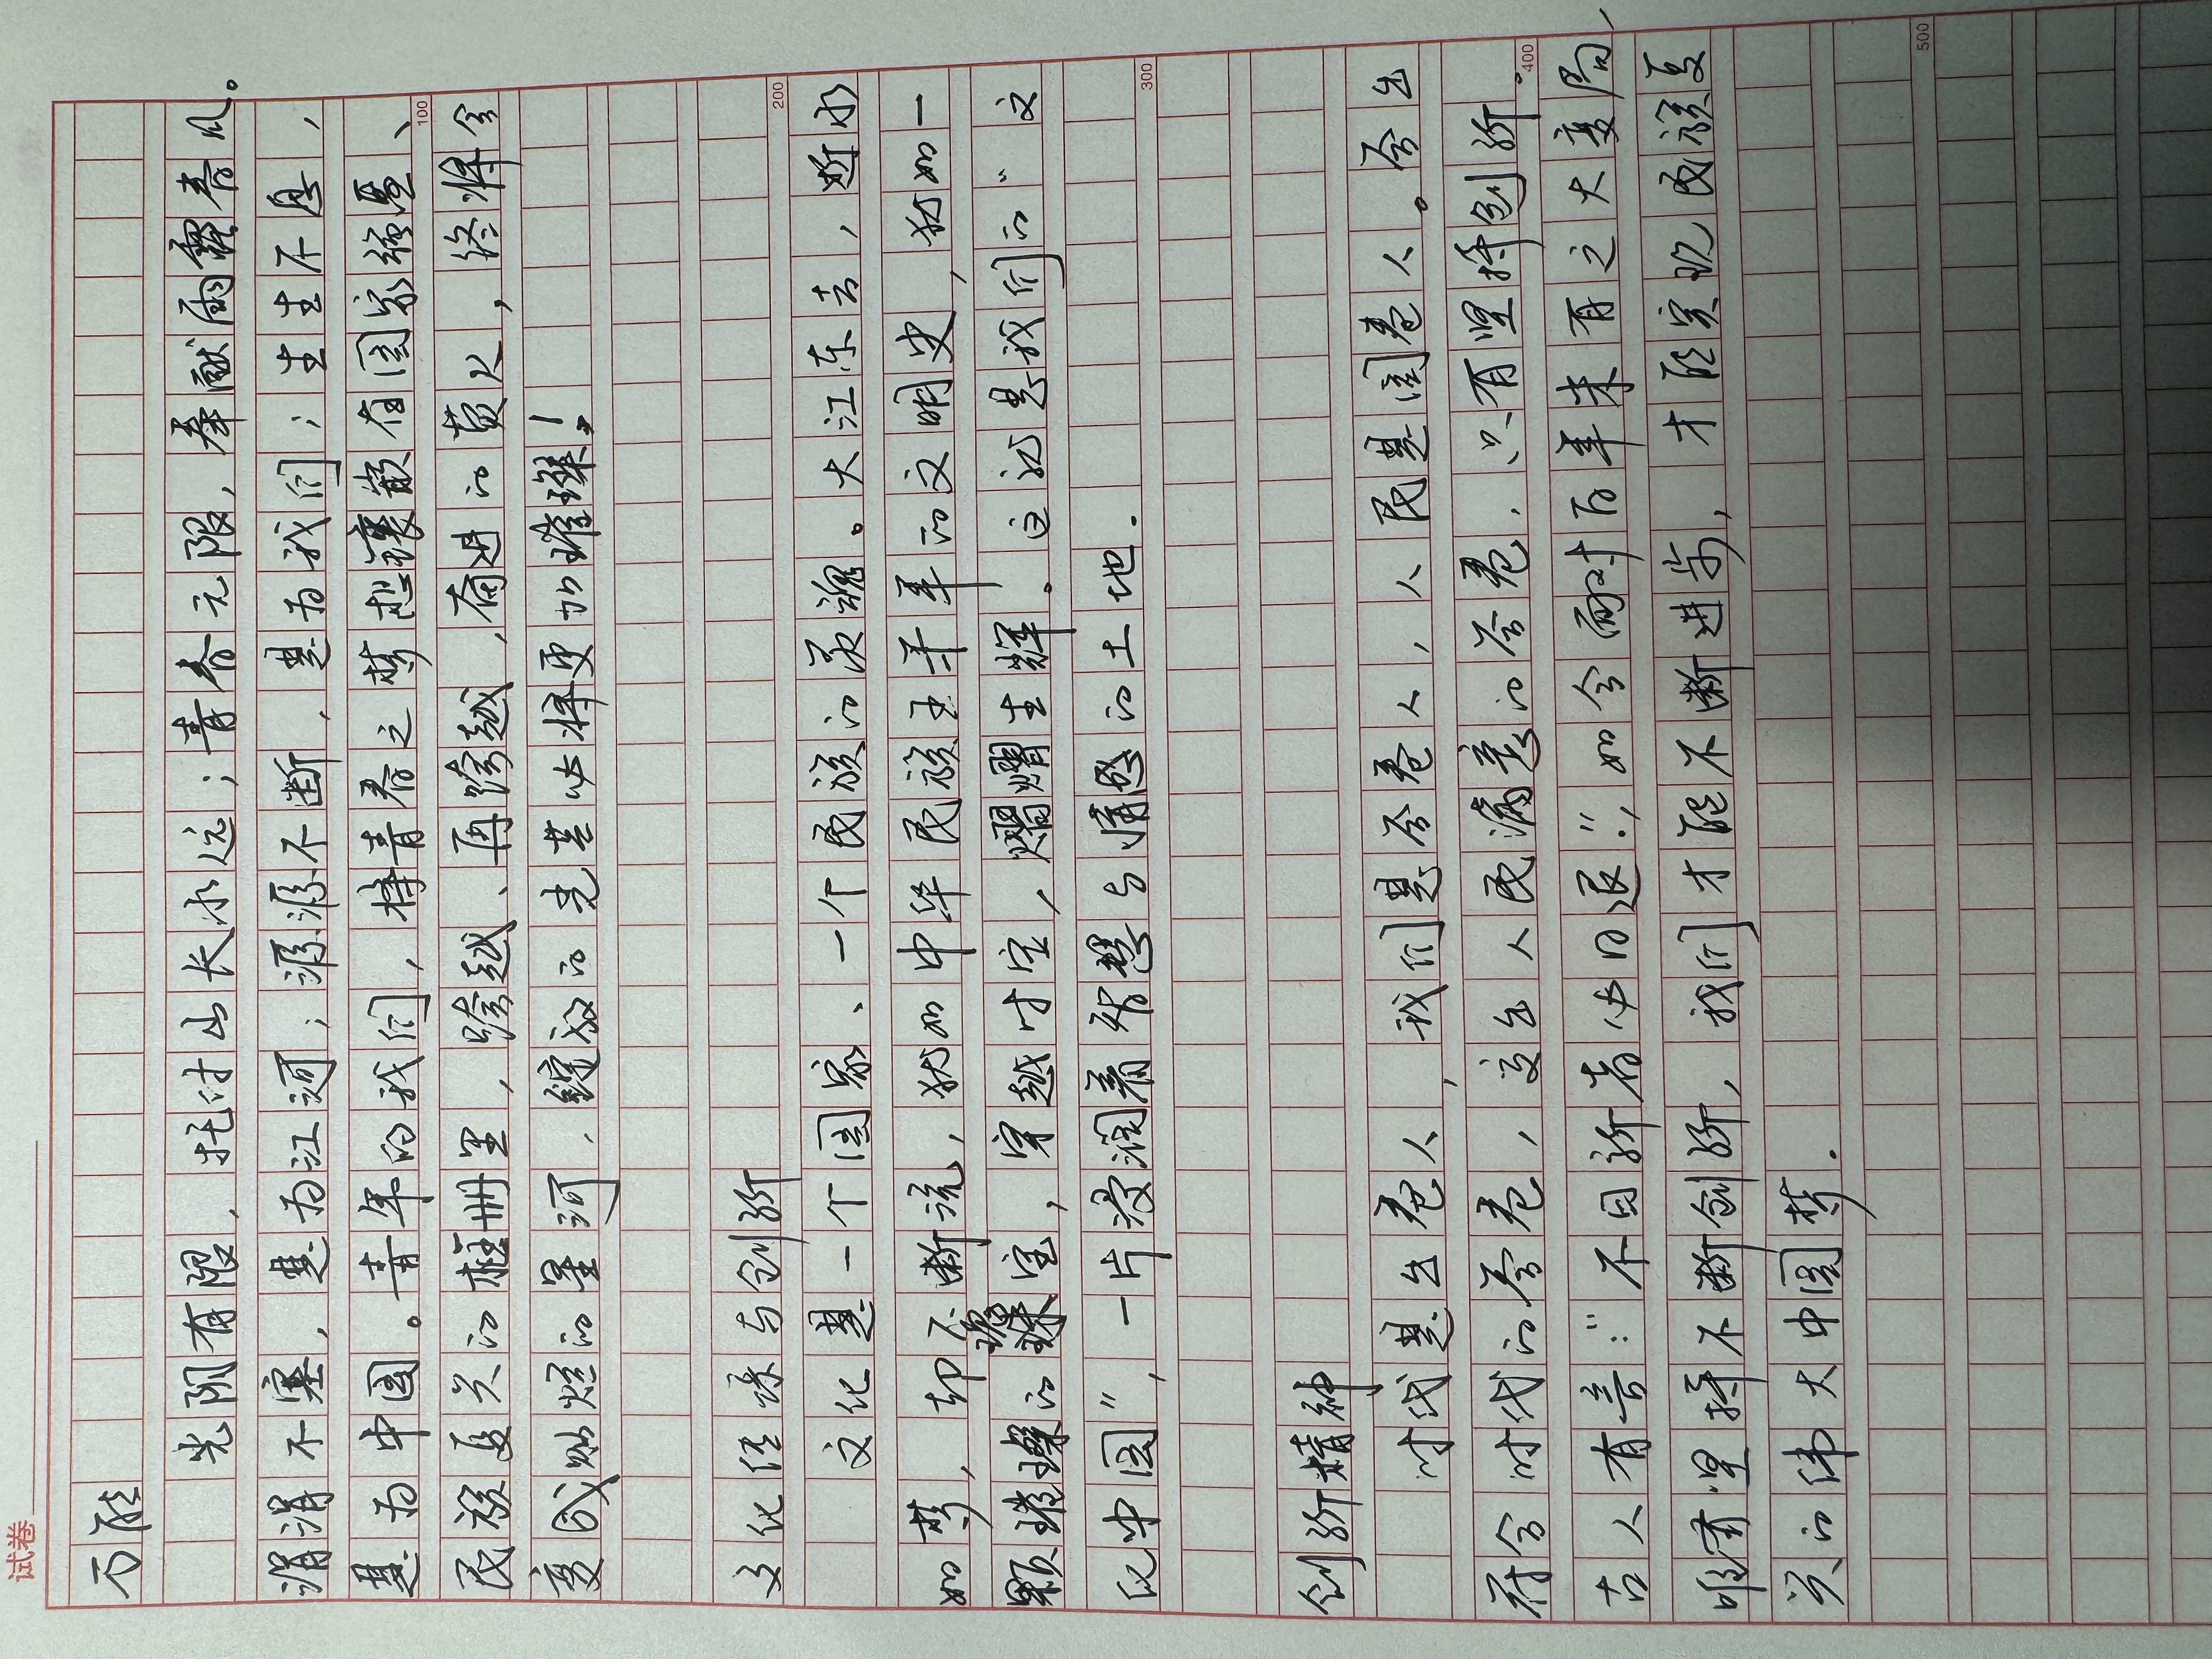 试卷
万能
光阴有限，托付山长水远；青春无限，奉献雨露春风。
涓涓不塞，是为江河；源源不断，是为我们；生生不息，
是为中国。青年的我们，将青春之梦想镶嵌在国家强盛、
100
民族复兴的框册里，跨越、再跨越，奋进的萤火，终将会
变成灿烂的星河，绽放的光芒必将更加璀璨！
文化传承与创新
200
文化是一个国家、一个民族的灵魂。大江东去，逝水
如梦，却不断流，犹如中华民族五千年的文明史，犹如一
颗璀璨的瑰宝，穿越时空，熠熠生辉。这就是我们的“文
化中国”，一片浸润着智慧与情感的土地。
300
创新精神
时代是出卷人，我们是答卷人，人民是阅卷人。答出
符合时代的答卷，交出人民满意的答卷，只有坚持创新。
400
古人有言：“不日新者必日退”，如今面对百年未有之大变局，
唯有坚持不断创新，我们才能不断进步，才能实现民族复
兴的伟大中国梦。
500